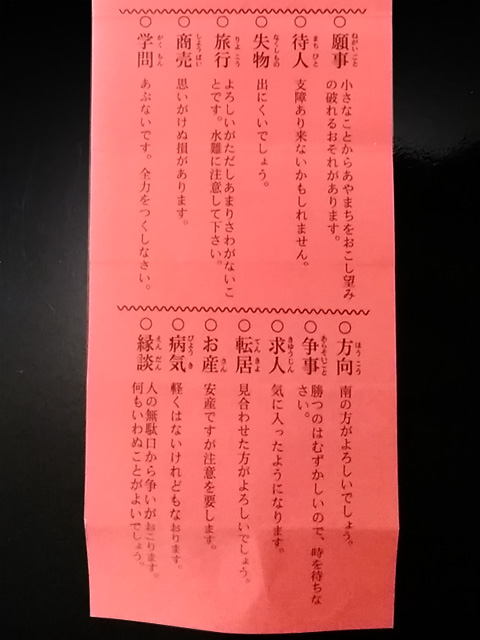 ○願事 小さなことからあやまちをおこし望み
の破れるおそれがあります。
○待人 支障あり来ないかもしれません。
○失物 出にくいでしょう。
○旅行 よろしいがただしあまりさわがないこ
とです。水難に注意して下さい。
○商売 思いがけぬ損があります。
○学問 あぶないです。全力をつくしなさい。
○方向 南の方がよろしいでしょう。
○争事 勝つのはむずかしいので、時を待ちな
さい。
○求人 気に入ったようになります。
○転居 見合わせた方がよろしいでしょう。
○お産 安産ですが注意を要します。
○病気 軽くはないけれどもなおります。
○縁談 人の無駄口から争いがおこります。
何もいわぬことがよいでしょう。